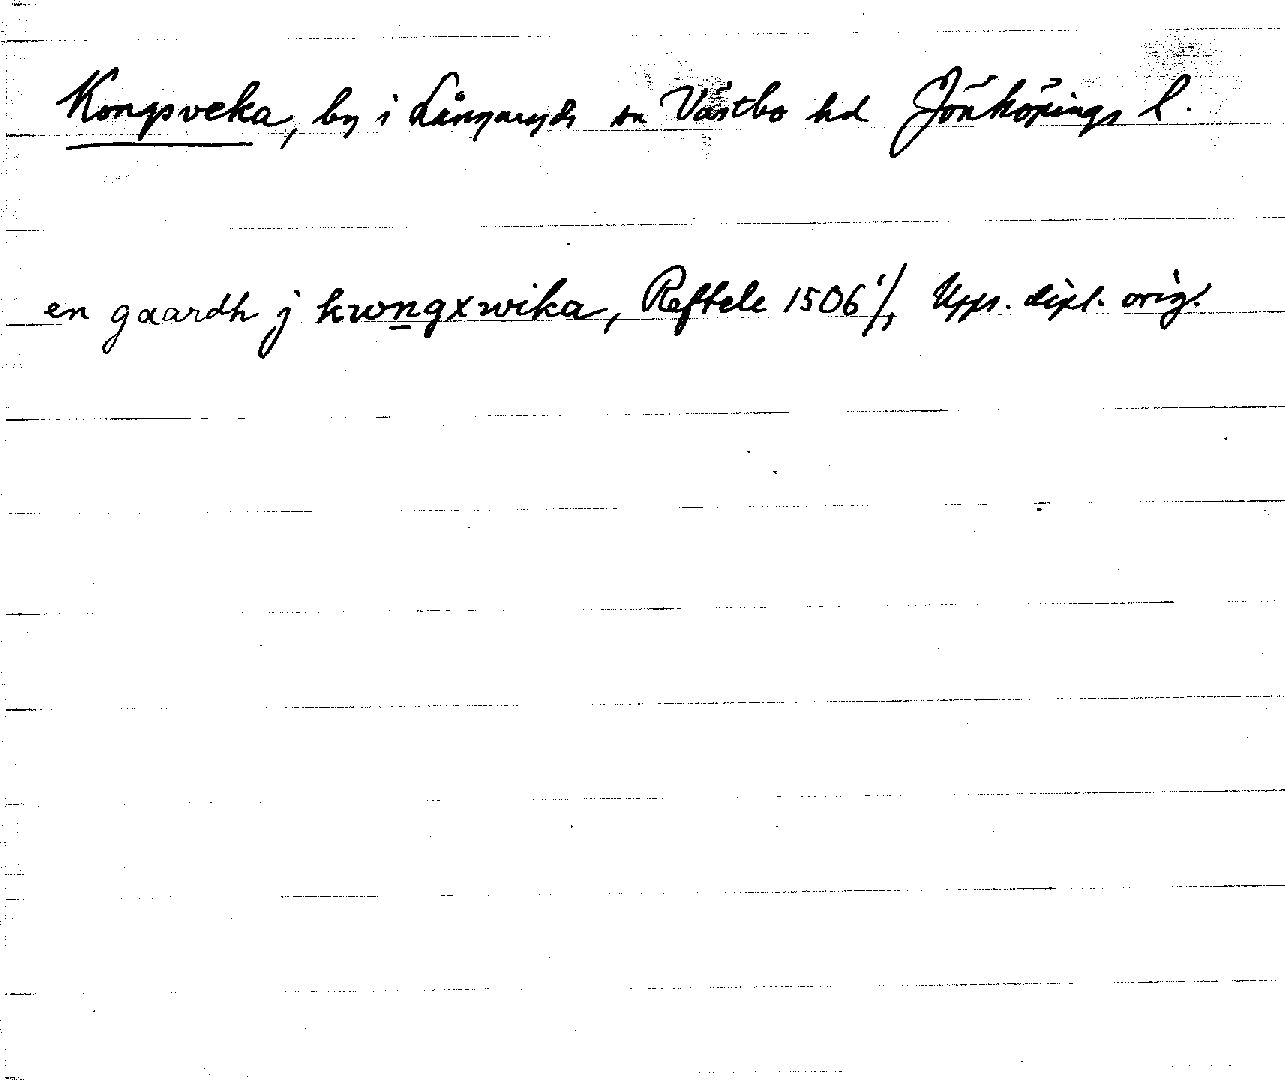 Kongsveka, by i Långaryds sn Västbo hd Jönköpings l.
en gaardh j kwongxwika, Reftele 1506 1/1 Upps. dipl. orig.